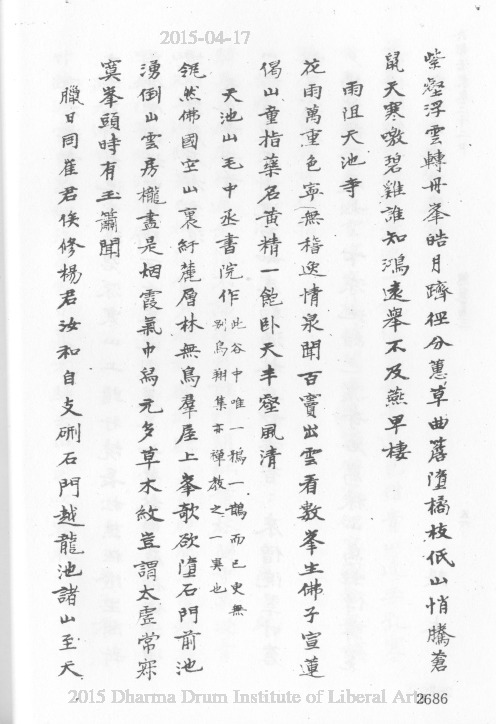 2015-04-17
紫壑浮雲轉丹峯皓月躋徑分蕙草曲落墮橘枝低山悄騰蒼
鼠天寒噭碧雞誰知鴻遠舉不及燕早棲
雨阻天池寺
花雨萬重色寧無稽逸情泉聞百竇出雲看數峯生佛子宣蓮
偈山童指藥名黃精一飽臥天半壑風清
天池山毛中丞書院作此谷中唯一鵶一鵲而已更無
別鳥翔集亦禪教之一異也
兀然佛國空山裏紆麓層林無鳥羣屋上峯欹欲墮石門前池
湧倒山雲房櫳盡是烟霞氣巾舄元多草木紋豈謂太虛常寂
寞峯頭時有玉簫聞
臘日同崔君俟修楊君汝和自支硎石門越龍池諸山至天
2015 Dharma Drum Institute of Liberal Arts
2686